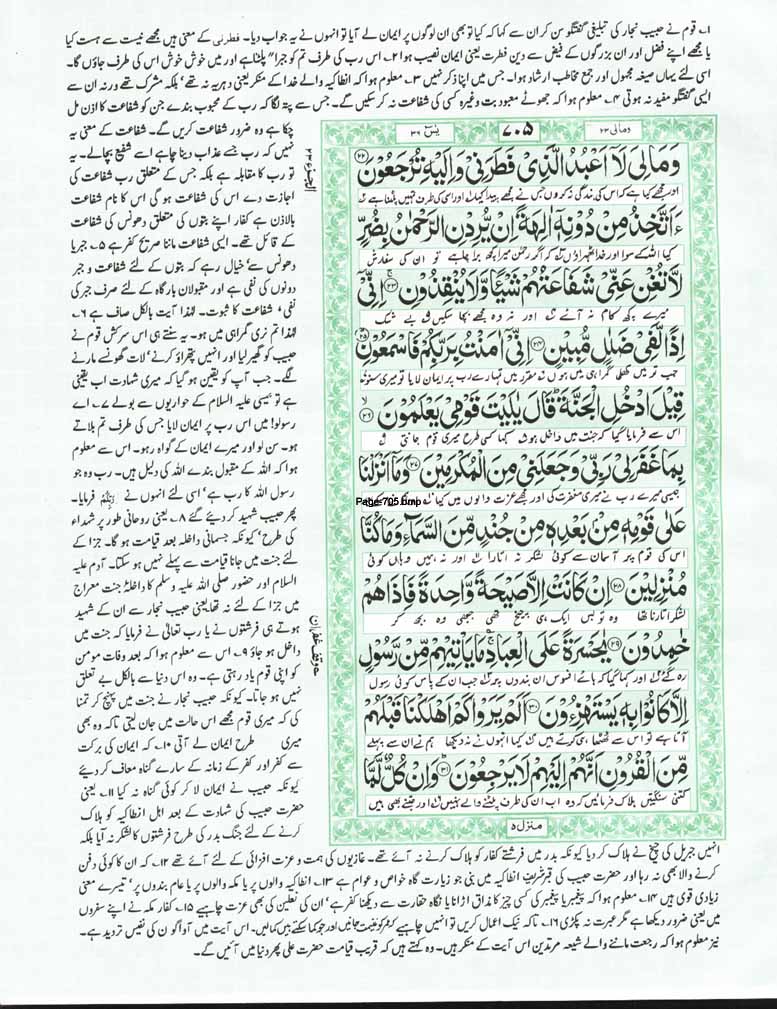 ۱؎ قوم نے حبیب نجار کی تبلیغی گفتگو سن کر ان سے کہا کہ کیا تو بھی ان لوگوں پر ایمان لے آیا تو انہوں نے یہ جواب دیا۔ فطرنی کے معنی ہیں مجھے نیست سے ہست کیا
یا مجھے اپنے فضل اور ان بزرگوں کے فیض سے دین فطرت یعنی ایمان نصیب ہوا ۲؎ اس رب کی طرف تم کو جبراً پلٹنا ہے اور میں خوش خوش اس کی طرف جاؤں گا۔
اسی لئے یہاں صیغہ مجہول اور جمع مخاطب ارشاد ہوا۔ جس میں اپنا ذکر نہیں ۳؎ معلوم ہوا کہ انطاکیہ والے خدا کے منکر یعنی دہریہ نہ تھے بلکہ مشرک تھے ورنہ ان سے
ایسی گفتگو مفید نہ ہوتی ۴؎ معلوم ہوا کہ جھوٹے معبود بت وغیرہ کسی کی شفاعت نہ کر سکیں گے۔ جس سے پتہ لگا کہ رب کے محبوب بندے جن کو شفاعت کا اذن مل
چکا ہے وہ ضرور شفاعت کریں گے۔ شفاعت کے معنی یہ
نہیں کہ رب جسے عذاب دینا چاہے اسے شفیع بچا لے۔ یہ
تو رب کا مقابلہ ہے بلکہ جس کے متعلق رب شفاعت کی
اجازت دے اس کی شفاعت ہو گی اس کا نام شفاعت
بالاذن ہے کفار اپنے بتوں کی متعلق دھونس کی شفاعت
کے قائل تھے۔ ایسی شفاعت ماننا صریح کفر ہے ۵؎ جبر یا
دھونس سے خیال رہے کہ بتوں کے لئے شفاعت و جبر
دونوں کی نفی ہے اور مقبولان بارگاہ کے لئے صرف جبر کی
نفی، شفاعت کا ثبوت۔ لہٰذا آیت بالکل صاف ہے ۶؎
لہٰذا تم نری گمراہی میں ہو۔ یہ سنتے ہی اس سرکش قوم نے
حبیب کو گھیر لیا اور انہیں پتھراؤ کرنے، لات گھونسے مارنے
لگے۔ جب آپ کو یقین ہو گیا کہ میری شہادت اب یقینی
ہے تو عیسیٰ علیہ السلام کے حواریوں سے بولے ۷؎ اے
رسولو! میں اس رب پر ایمان لایا جس کی طرف تم بلاتے
ہو۔ سن لو اور میرے ایمان کے گواہ رہو۔ اس سے معلوم
ہوا کہ اللہ کے مقبول بندے اللہ کی دلیل ہیں۔ رب وہ جو
رسول اللہ کا رب ہے، اسی لئے انہوں نے بِرَبِّكُمْ فرمایا۔
پھر حبیب شہید کر دیئے گئے ۸؎ یعنی روحانی طور پر شہداء
کی طرح، کیونکہ جسمانی داخلہ بعد قیامت ہو گا۔ جزا کے
لئے جنت میں جانا قیامت سے پہلے نہیں ہو سکتا۔ آدم علیہ
السلام اور حضور صلی اللہ علیہ وسلم کا داخلہ جنت معراج
میں جزا کے لئے نہ تھا یعنی حبیب نجار سے ان کے شہید
ہوتے ہی فرشتوں نے یا رب تعالیٰ نے فرمایا کہ جنت میں
داخل ہو جاؤ ۹؎ اس سے معلوم ہوا کہ بعد وفات مومن
کو اپنی قوم یاد رہتی ہے۔ وہ اس دنیا سے بالکل بے تعلق
نہیں ہو جاتا۔ کیونکہ حبیب نجار نے جنت میں پہنچ کر تمنا
کی کہ میری قوم مجھے اس حالت میں جان لیتی تاکہ وہ بھی
میری طرح ایمان لے آتی ۱۰؎ کہ ایمان کی برکت
سے کفر اور کفر کے زمانہ کے سارے گناہ معاف کر دیئے
کیونکہ حبیب نے ایمان لا کر کوئی گناہ نہ کیا ۱۱؎ یعنی
حضرت حبیب کی شہادت کے بعد اہل انطاکیہ کو ہلاک
کرنے کے لئے جنگ بدر کی طرح فرشتوں کا لشکر نہ آیا بلکہ
ومالی ۲۳ ۷۰۵ یٰسٓ ۳۶
وَمَا لِيَ لَآ اَعْبُدُ الَّذِيْ فَطَرَنِيْ وَاِلَيْهِ تُرْجَعُوْنَ ۲۲
اور مجھے کیا ہے کہ اس کی بندگی نہ کروں جس نے مجھے پیدا کیا اور اسی کی طرف تمہیں پلٹنا ہے
ءَاَتَّخِذُ مِنْ دُوْنِهٖٓ اٰلِهَةً اِنْ يُّرِدْنِ الرَّحْمٰنُ بِضُرٍّ
کیا اللہ کے سوا اور خدا ٹھہراؤں کہ اگر رحمٰن میرا کچھ برا چاہے تو ان کی سفارش
لَّا تُغْنِ عَنِّيْ شَفَاعَتُهُمْ شَيْـًٔا وَّلَا يُنْقِذُوْنِ ۲۳ اِنِّيْٓ
میرے کچھ کام نہ آئے اور نہ وہ مجھے بچا سکیں بے شک
اِذًا لَّفِيْ ضَلٰلٍ مُّبِيْنٍ ۲۴ اِنِّيْٓ اٰمَنْتُ بِرَبِّكُمْ فَاسْمَعُوْنِ ۲۵
جب تو میں کھلی گمراہی میں ہوں مقرر میں تمہارے رب پر ایمان لایا تو میری سنو
قِيْلَ ادْخُلِ الْجَنَّةَ قَالَ يٰلَيْتَ قَوْمِيْ يَعْلَمُوْنَ ۲۶
اس سے فرمایا گیا کہ جنت میں داخل ہو کہا کسی طرح میری قوم جانتی
بِمَا غَفَرَ لِيْ رَبِّيْ وَجَعَلَنِيْ مِنَ الْمُكْرَمِيْنَ ۲۷ وَمَآ اَنْزَلْنَا
جیسی میرے رب نے میری مغفرت کی اور مجھے عزت والوں میں کیا
Page-705.bmp
عَلٰى قَوْمِهٖ مِنْۢ بَعْدِهٖ مِنْ جُنْدٍ مِّنَ السَّمَآءِ وَمَا كُنَّا
اس کی قوم پر آسمان سے کوئی لشکر نہ اتارا اور نہ ہمیں وہاں کوئی
مُنْزِلِيْنَ ۲۸ اِنْ كَانَتْ اِلَّا صَيْحَةً وَّاحِدَةً فَاِذَا هُمْ
لشکر اتارنا تھا وہ تو بس ایک ہی چیخ تھی جبھی وہ بجھ کر
خٰمِدُوْنَ ۲۹ يٰحَسْرَةً عَلَى الْعِبَادِ مَا يَاْتِيْهِمْ مِّنْ رَّسُوْلٍ
رہ گئے اور کہا گیا کہ ہائے افسوس ان بندوں پر جب ان کے پاس کوئی رسول
اِلَّا كَانُوْا بِهٖ يَسْتَهْزِءُوْنَ ۳۰ اَلَمْ يَرَوْا كَمْ اَهْلَكْنَا قَبْلَهُمْ
آتا ہے تو اس سے ٹھٹھا ہی کرتے ہیں کیا انہوں نے نہ دیکھا ہم نے ان سے پہلے
مِّنَ الْقُرُوْنِ اَنَّهُمْ اِلَيْهِمْ لَا يَرْجِعُوْنَ ۳۱ وَاِنْ كُلٌّ لَّمَّا
کتنی سنگتیں ہلاک فرمائیں کہ وہ اب ان کی طرف پلٹنے والے نہیں اور جتنے بھی ہیں
منزل ۵
وقف غفران
انہیں جبریل کی چیخ نے ہلاک کر دیا کیونکہ بدر میں فرشتے کفار کو ہلاک کرنے نہ آئے تھے۔ غازیوں کی ہمت و عزت افزائی کے لئے آئے تھے ۱۲؎ کہ ان کا کوئی دفن
کرنے والا بھی نہ رہا اور حضرت حبیب کی قبر شریف انطاکیہ میں بنی جو زیارت گاہ خواص و عوام ہے ۱۳؎ انطاکیہ والوں پر یا مکہ والوں پر یا عام بندوں پر، تیسرے معنی
زیادہ قوی ہیں ۱۴؎ معلوم ہوا کہ پیغمبر یا پیغمبر کی کسی چیز کا مذاق اڑانا یا نگاہ حقارت سے دیکھنا کفر ہے، ان کی نعلین کی بھی عزت چاہیے ۱۵؎ کفار مکہ نے اپنے سفروں
میں یعنی ضرور دیکھا ہے مگر عبرت نہ پکڑی ۱۶؎ تاکہ نیک اعمال کریں تو انہیں چاہیے کہ اس آیت میں آواگون کی نفیس تردید ہے۔
نیز معلوم ہوا کہ رجعت ماننے والے شیعہ مرتدین اس آیت کے منکر ہیں۔ وہ کہتے ہیں کہ قریب قیامت حضرت علی پھر دنیا میں آئیں گے۔